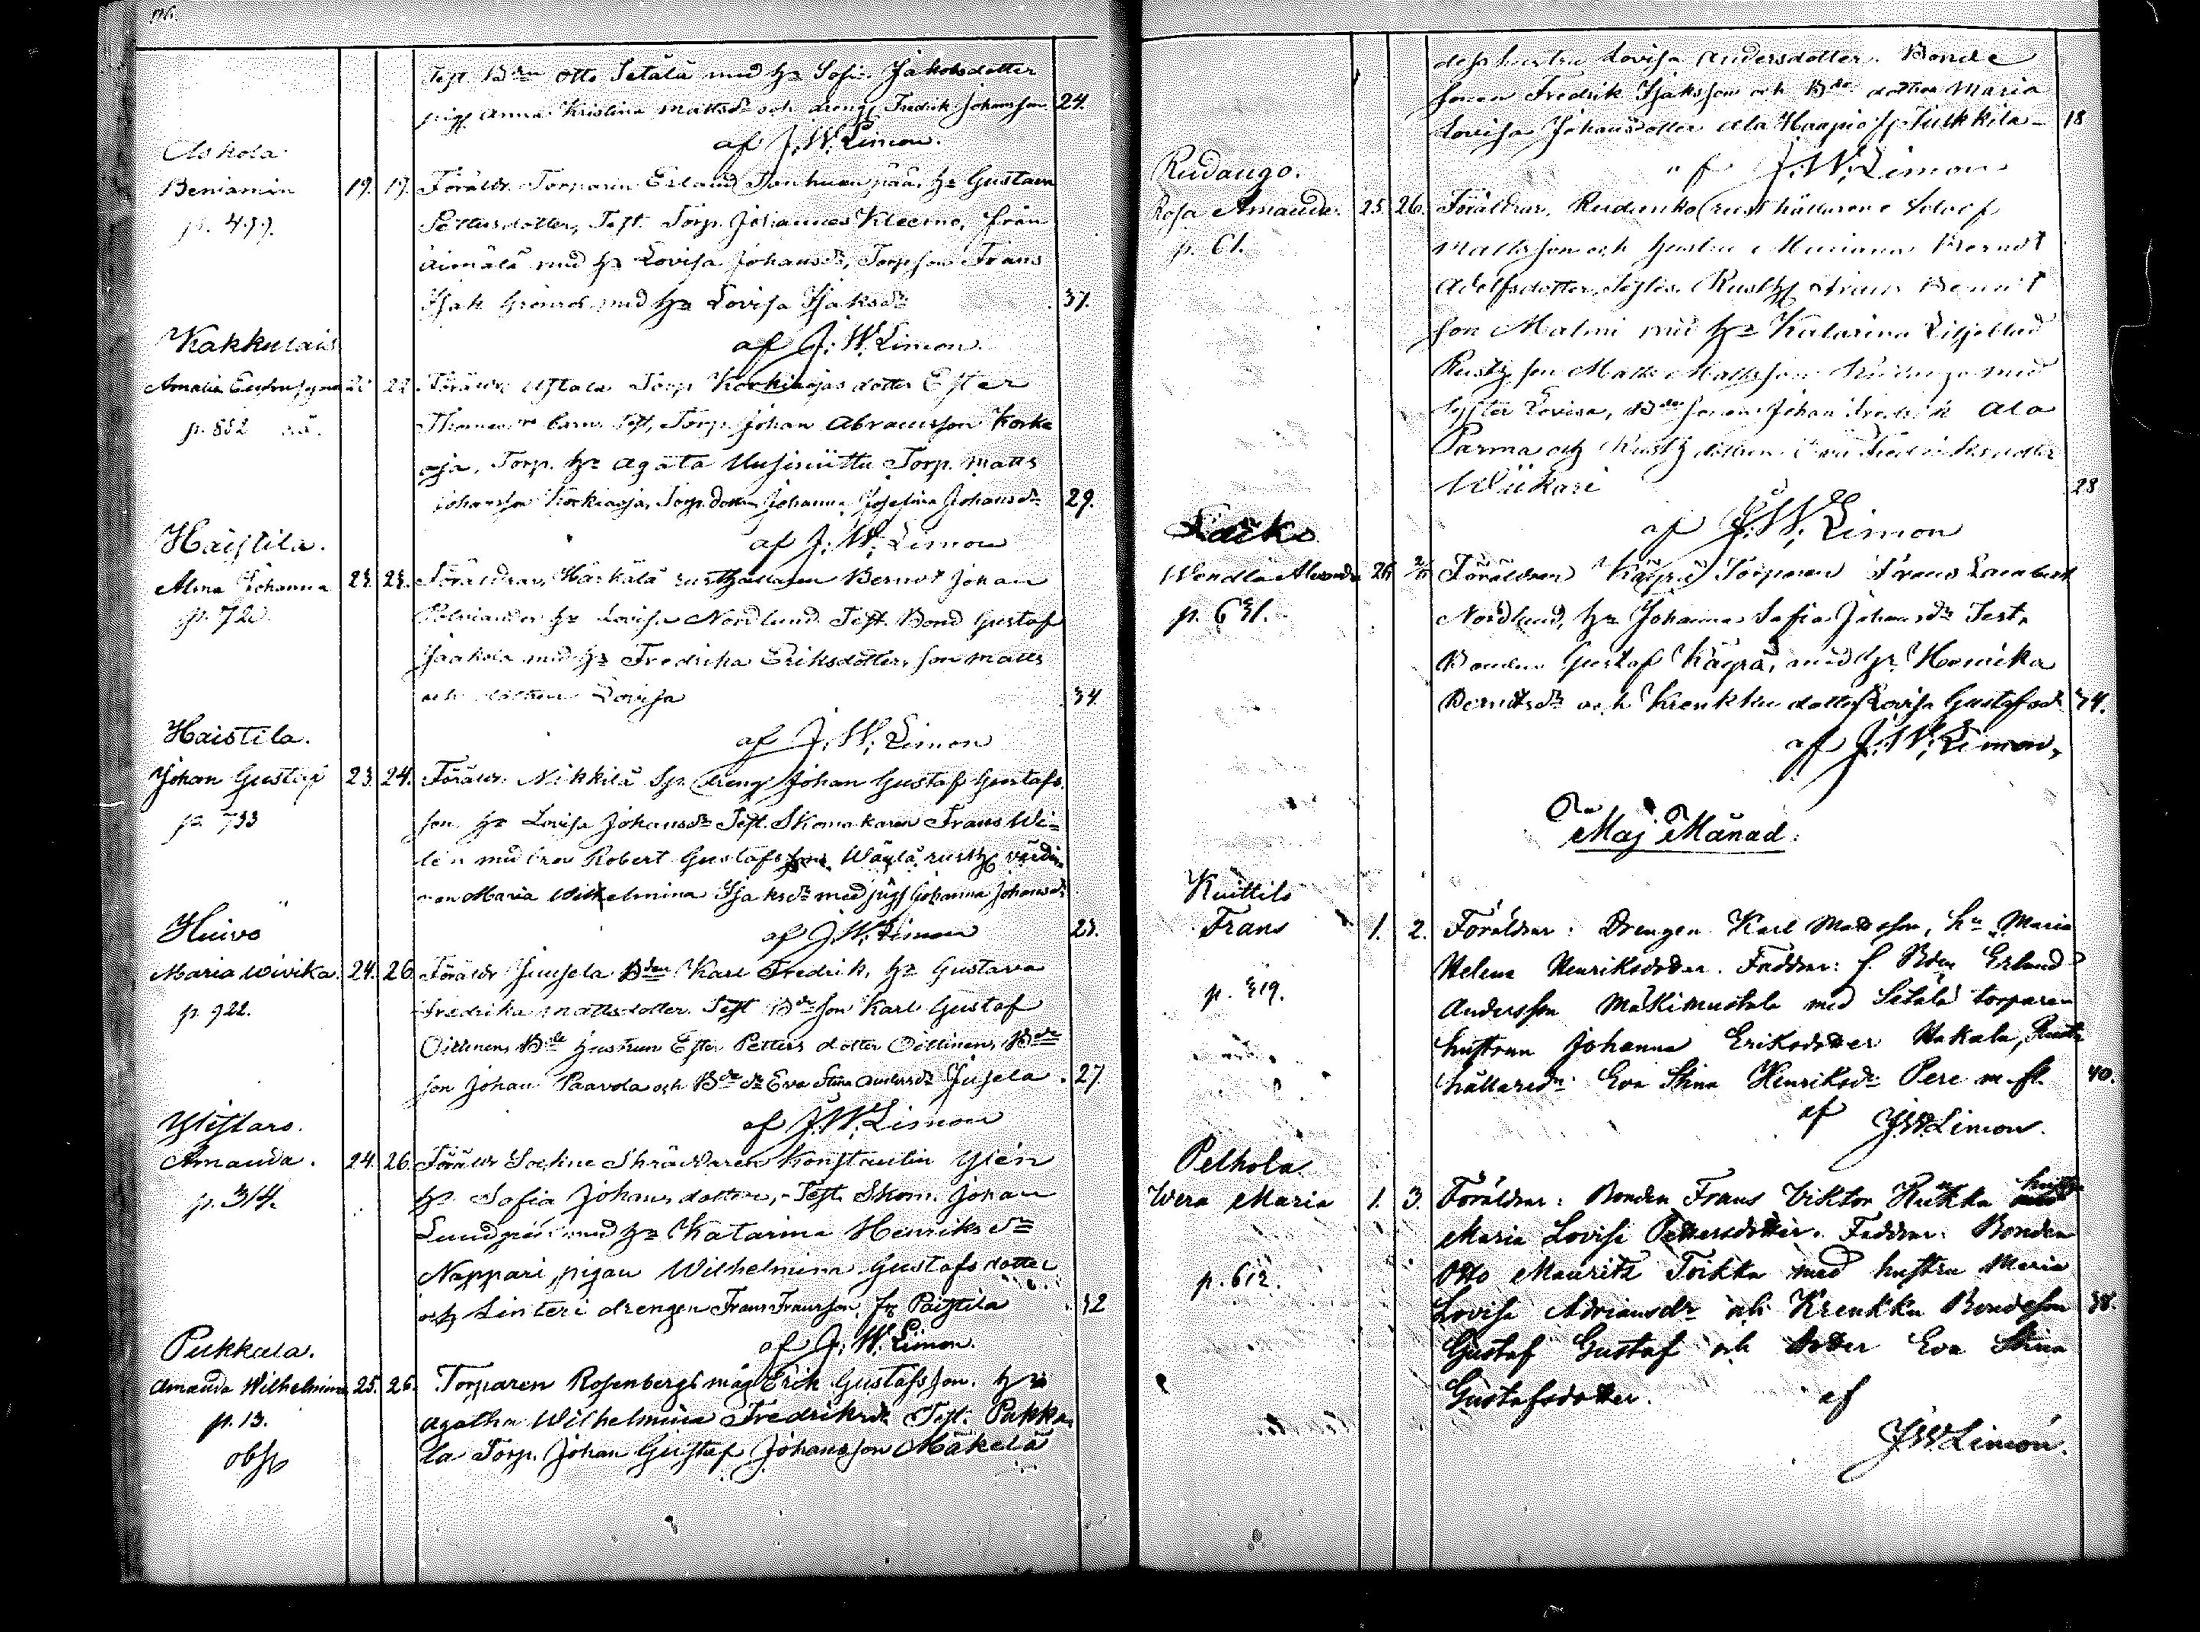 Test. Bden Otto Setälä med hu Sofia Jakobsdotter
pig Anna Kristina Mattsdr och dreng Fredrik Johansson 24.
af J. W. Limon.
Askola
Beniamin 19. 19. Föräldr. Torparen Erland hu Gustava
p. 499.
Pettersdotter, Test. Torp. Johannes Kleemo, från
Äimälä med hu Lovisa Johansdr, Torpson Frans
Isak Grönroos med hu Lovisa Isaksdr 37.
Kakkulais
af J. W. Limon.
Amalia 22. Föräldr. Torp. Korkiaojas dotter Ester
p. 852
barn Test. Torp. Johan Abramsson Korkia
oja, Torp. hu Agata Uusiniittu Torp. Matts
Johansson Korkiaoja, Torp. dottern Johanna Josefina Johansdr 29.
Haistila.
af J. W. Limon
Alma Johanna 23. 23. Föräldrar, Härkälä rusthållaren Berndt Johan
p. 72
hu Lovisa Nordlund. Test. Bond Gustaf
Jaakola med hu Fredrika Eriksdotter, son Matts
och dottren Lovisa 34.
Haistila.
af J. W. Limon
Johan Gustaf 23. 24. Föräldr. Nikkilä dreng Johan Gustaf Gustafs
p. 733
son hu Lovisa Johansdr Test. Skomakaren Frans Wi-
lén med bror Robert Gustafsson Wäylä rusth värdin
nan Maria Wilhelmina Isaksdr med pig Johanna Johansdr
Huivo
af J. W. Limon 23.
Maria Wivika. 24. 26. Föräldr Juusela Bden Karl Fredrik, hu Gustava
p. 922.
Fredrika Mattsdotter Test Bde son Karl Gustaf
Oittinen, Bde hustrun Ester Petters dotter Oittinen, Bde
son Johan Paavola och Bde dr Eva Stina Andersdr Jusela. 27
Yliståro.
af J. W. Limon
Amanda. 24. 26. Föräldr Sockne Skräddaren Konstantin Ylén
p. 314.
hu Sofia Johans dotter, Test. Skom. Johan
Lundgrén med hu Katarina Henriksdr
Nappari, pigan Wilhelmina Gustafs dotter
och Linteri drengen Frans Fransson fr Paistila 32
Pukkala.
af J. W. Limon.
Amanda Wilhelmina 25. 26. Torparen Rosenbergs måg Erik Gustafsson. hu
p. 13.
Agatha Wilhelmina Fredriksdr Test. Pukka-
la Torp. Johan Gustaf Johansson Mäkelä
dess hustru Lovisa Andersdotter. Bonde
sonen Fredrik Isaksson och Bde dottren Maria
Lovisa Johansdotter Ala Haapio Tulkkila 18
Rudango.
af J. W. Limon
Rosa Amanda. 25. 26. Föräldrar, Rudanko rusthållaren Adolf
p. 61.
Mattsson och hustru Mariana Berndt
Adolfsdotter, Frans Berndt
son Malmi med hu Katarina Liljeblad
Rusth son Matts Mattsson Rudango med
syster Lovisa, Bde sonen Johan Fredrik Ala
Parma och Rusth dottern Fredriksdotter
Wiikari 28
Laiko.
af J. W. Limon
Wendla Alexandra 26 Föräldrar Käyrä Torparen Frans Lambert
p. 631.
Nordlund, hu Johanna Sofia Johansdr Test.
Bonden Gustaf Käyrä, med hu Henrika
Berndtsdr och Krenkku dotter Lovisa Gustafsdr 34.
af J. W. Limon,
Maj Månad:
Kuittilo
Frans 1. 2. Föräldrar: Drengen Karl Mattsson, hu Maria
p. 319.
Helena Henriksdotter. Faddrar: f. Bden Erland
Andersson Mäkimustala med Setälä torparen
hustrun Johanna Eriksdotter Uukala, Rust-
hållaredr Eva Stina Henriksdr Pere m. fl. 40.
af
J. W. Limon.
Pelhola.
Wera Maria 1. 3. Föräldrar: Bonden Frans Viktor Hukka hustru
p. 612.
Maria Lovisa Pettersdotter. Faddrar: Bonden
Otto Mauritz Toikka med hustru Maria
Lovisa Adriansdr och Krenkku Bondeson 38.
Gustaf Gustaf och dotter Eva Stina
Gustafsdotter. af
J. W. Limon.